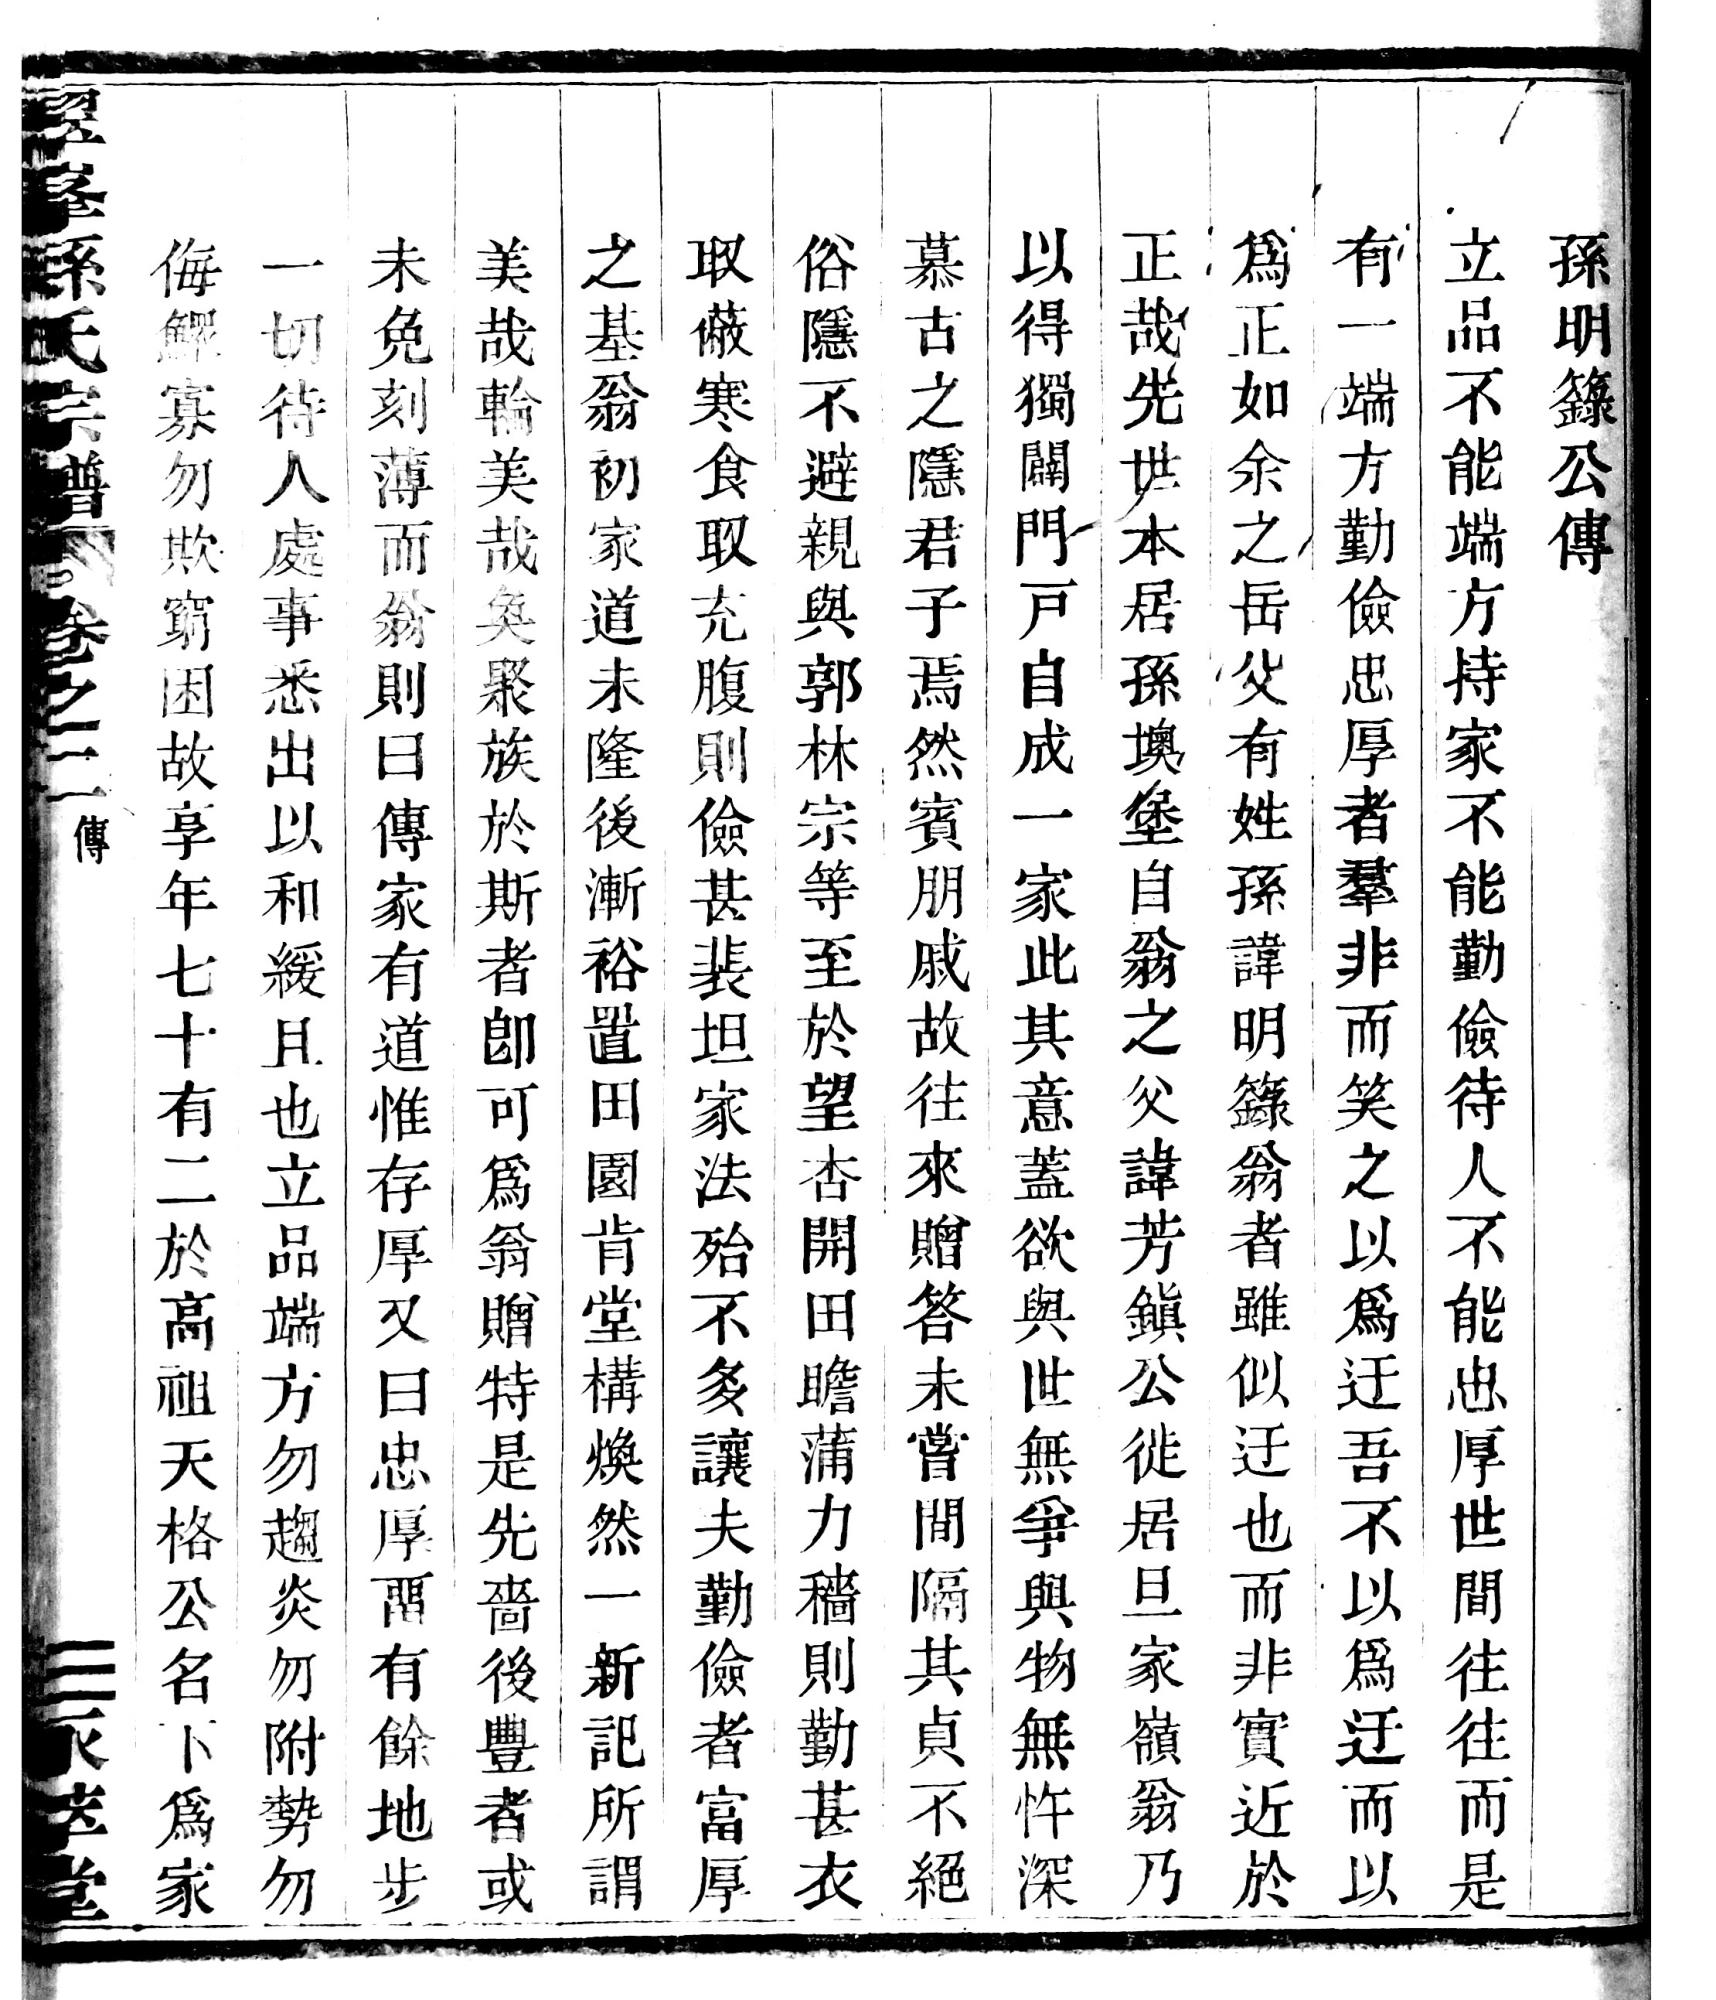 孫明籙公傳
立品不能端方持家不能勤儉待人不能忠厚世間往往而是
有一端方勤儉忠厚者羣非而笑之以爲迂吾不以爲迂而以
爲正如余之岳父有姓孫諱明籙翁者雖似迂也而非實近於
正哉先世本居孫墺堡自翁之父諱芳鎭公徙居旦家嶺翁乃
以得獨闢門戸自成一家此其意蓋欲與世無爭與物無忤深
慕古之隱君子焉然賓朋戚故往來贈答未嘗間隔其貞不絕
俗隱不避親與郭林宗等至於望杏開田瞻蒲力穡則勤甚衣
取蔽寒食取充腹則儉甚裴坦家法殆不多讓夫勤儉者富厚
之基翁初家道未隆後漸裕置田園肯堂構煥然一新記所謂
美哉輪美哉奐聚族於斯者卽可爲翁贈特是先嗇後豐者或
未免刻薄而翁則曰傳家有道惟存厚又曰忠厚畱有餘地步
一切待人處事悉出以和緩且也立品端方勿趨炎勿附勢勿
侮鰥寡勿欺窮困故享年七十有二於高祖天格公名下爲家
孫氏宗譜 卷之二 傳 三 萃堂